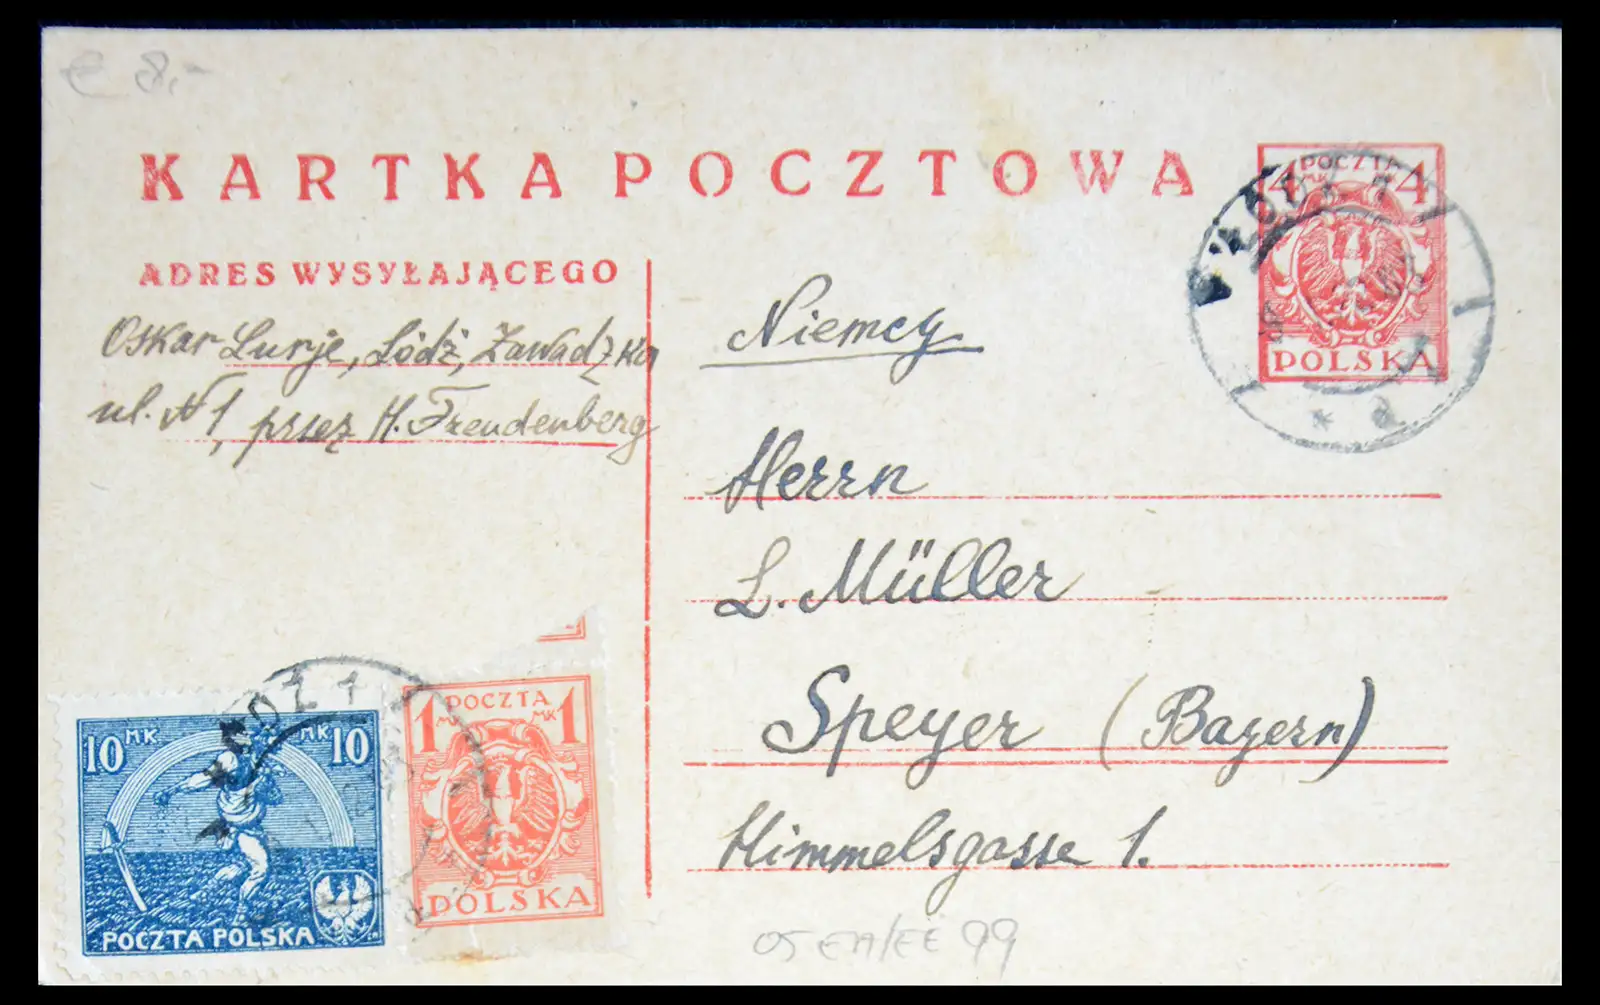 € 8,-
KARTKA POCZTOWA
4 POCZTA 4
MK MK
POLSKA
ADRES WYSYŁAJĄCEGO
Oskar Lurje, Łódź, Zawadzka
ul. N 1, przez H. Freudenberg
Niemcy
Herrn
L. Müller
Speyer (Bayern)
Himmelsgasse 1.
ŁÓDŹ 1
* d
ŁÓDŹ 1
10 MK MK 10
POCZTA POLSKA
1 POCZTA 1
MK MK
POLSKA